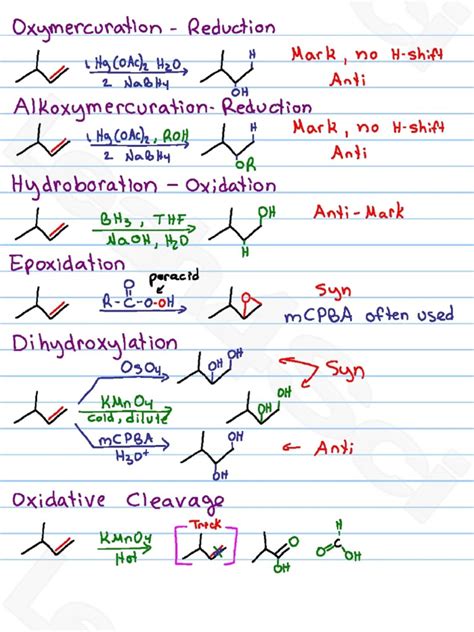 Oxymercuration - Reduction
1 Hg(OAc)2 H2O
2 NaBH4
H
OH
Mark, no H-shift
Anti
Alkoxymercuration-Reduction
1 Hg(OAc)2, ROH
2 NaBH4
H
OR
Mark, no H-shift
Anti
Hydroboration - Oxidation
BH3, THF
NaOH, H2O
OH
H
Anti-Mark
Epoxidation
O
R-C-O-OH
peracid
O
Syn
mCPBA often used
Dihydroxylation
OsO4
OH
OH
KMnO4
cold, dilute
OH
OH
Syn
mCPBA
H3O+
OH
OH
Anti
Oxidative Cleavage
KMnO4
Hot
Trick
O
OH
H
O
C
OH